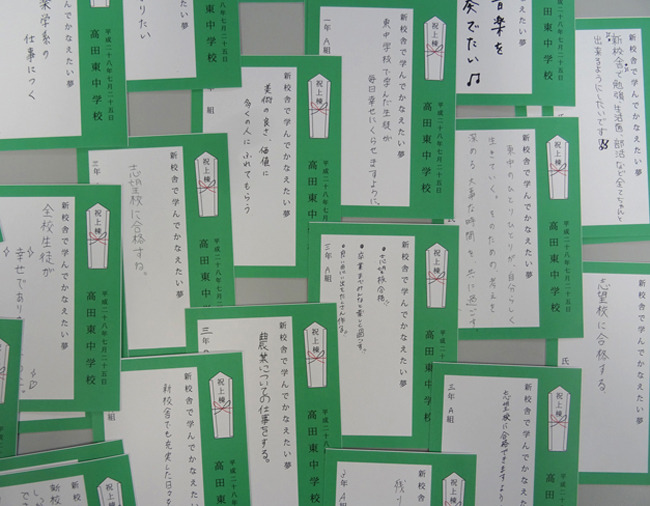 薬学系の
仕事につく
平成二十八年七月二十五日
高田東中学校
音楽を
奏でたい♫
一年A組
新校舎で学んでかなえたい夢
東中学校で学んだ生徒が
毎日幸せにくらせますように。
祝上棟
平成二十八年七月二十五日
高田東中学校
新校舎で勉強、生活面、部活など全てちゃんと
出来るようにしたいです!!
新校舎で学んでかなえたい夢
美術の良さ、価値に
多くの人にふれてもらう
祝上棟
平成二十八年七月二十五日
高田東中学校
新校舎で学んでかなえたい夢
東中のひとりひとりが、自分らしく
生きていく。そのための、考えを
深める大事な時間を共に過ごす。
平成二十八年七月二十五日
高田東中学校
三年
新校舎で学んでかなえたい夢
志望校に合格する。
祝上棟
平成二十八年
高田東中
新校舎で学んでかなえたい夢
全校生徒が
幸せであり
祝上棟
平成二十八年七月二十五日
高田東中学校
三年A組
新校舎で学んでかなえたい夢
志望校合格。
祝上棟
平成二十八
高田東中学校
新校舎で学んでかなえたい夢
志望校に合格する。
氏
三年
新校舎で学んでかなえたい夢
農業についての仕事をする。
祝上棟
平成二十八年七月二十五日
高田東中学校
新校舎で学んでかなえたい夢
新校舎でも充実した日々を
祝上棟
平成二十八年七月
高田東中学校
三年A組
新校舎で学んでかなえたい夢
志望校に合格できますよう
祝上棟
平成二
高田東
新校舎
残り
祝上棟
新校